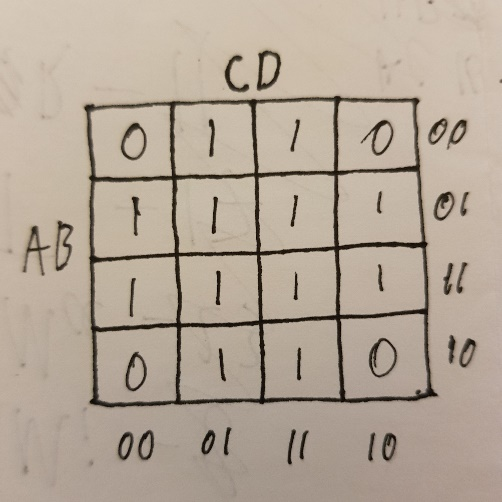 CD
0 1 1 0 00
1 1 1 1 01
AB
1 1 1 1 11
0 1 1 0 10
00 01 11 10